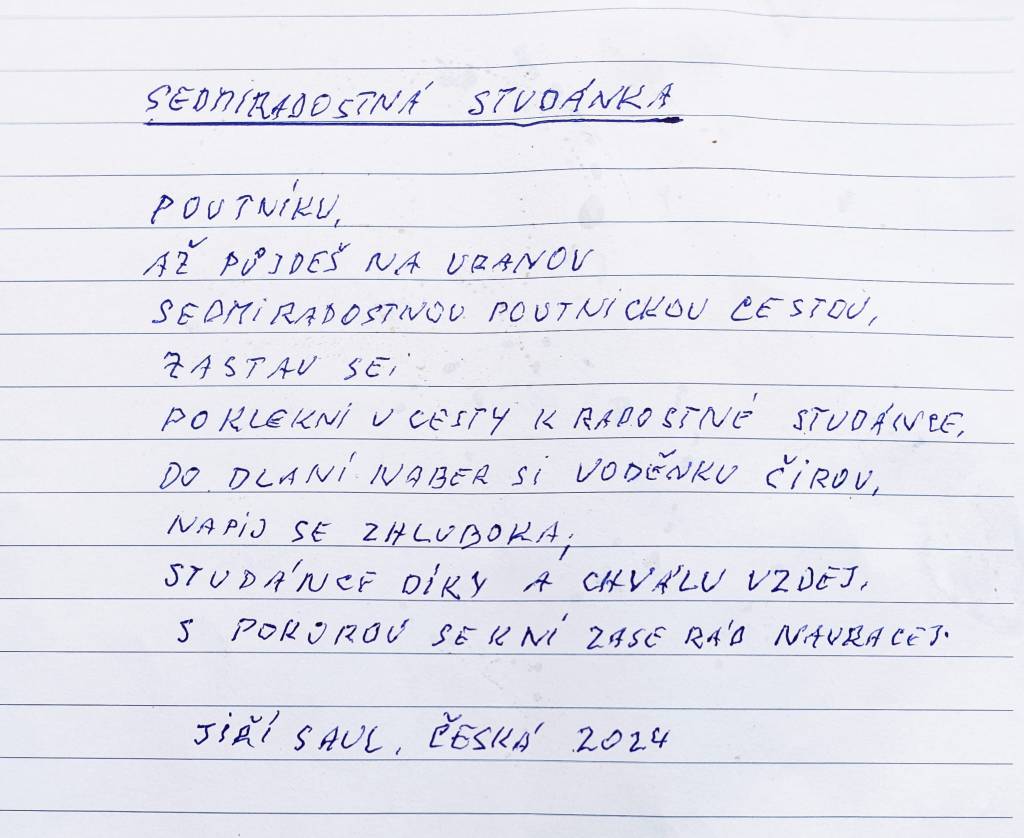 SEDMIRADOSTNÁ STUDÁNKA
POUTNÍKU,
AŽ PŮJDEŠ NA VRANOV
SEDMIRADOSTNOU POUTNICKOU CESTOU,
ZASTAV SE;
POKLEKNI U CESTY K RADOSTNÉ STUDÁNCE,
DO DLANÍ NABER SI VODĚNKU ČIROU,
NAPIJ SE ZHLUBOKA;
STUDÁNCE DÍKY A CHVÁLU VZDEJ,
S POKOROU SE K NÍ ZASE RÁD NAVRACEJ.
JIŘÍ SAUL, ČESKÁ 2024